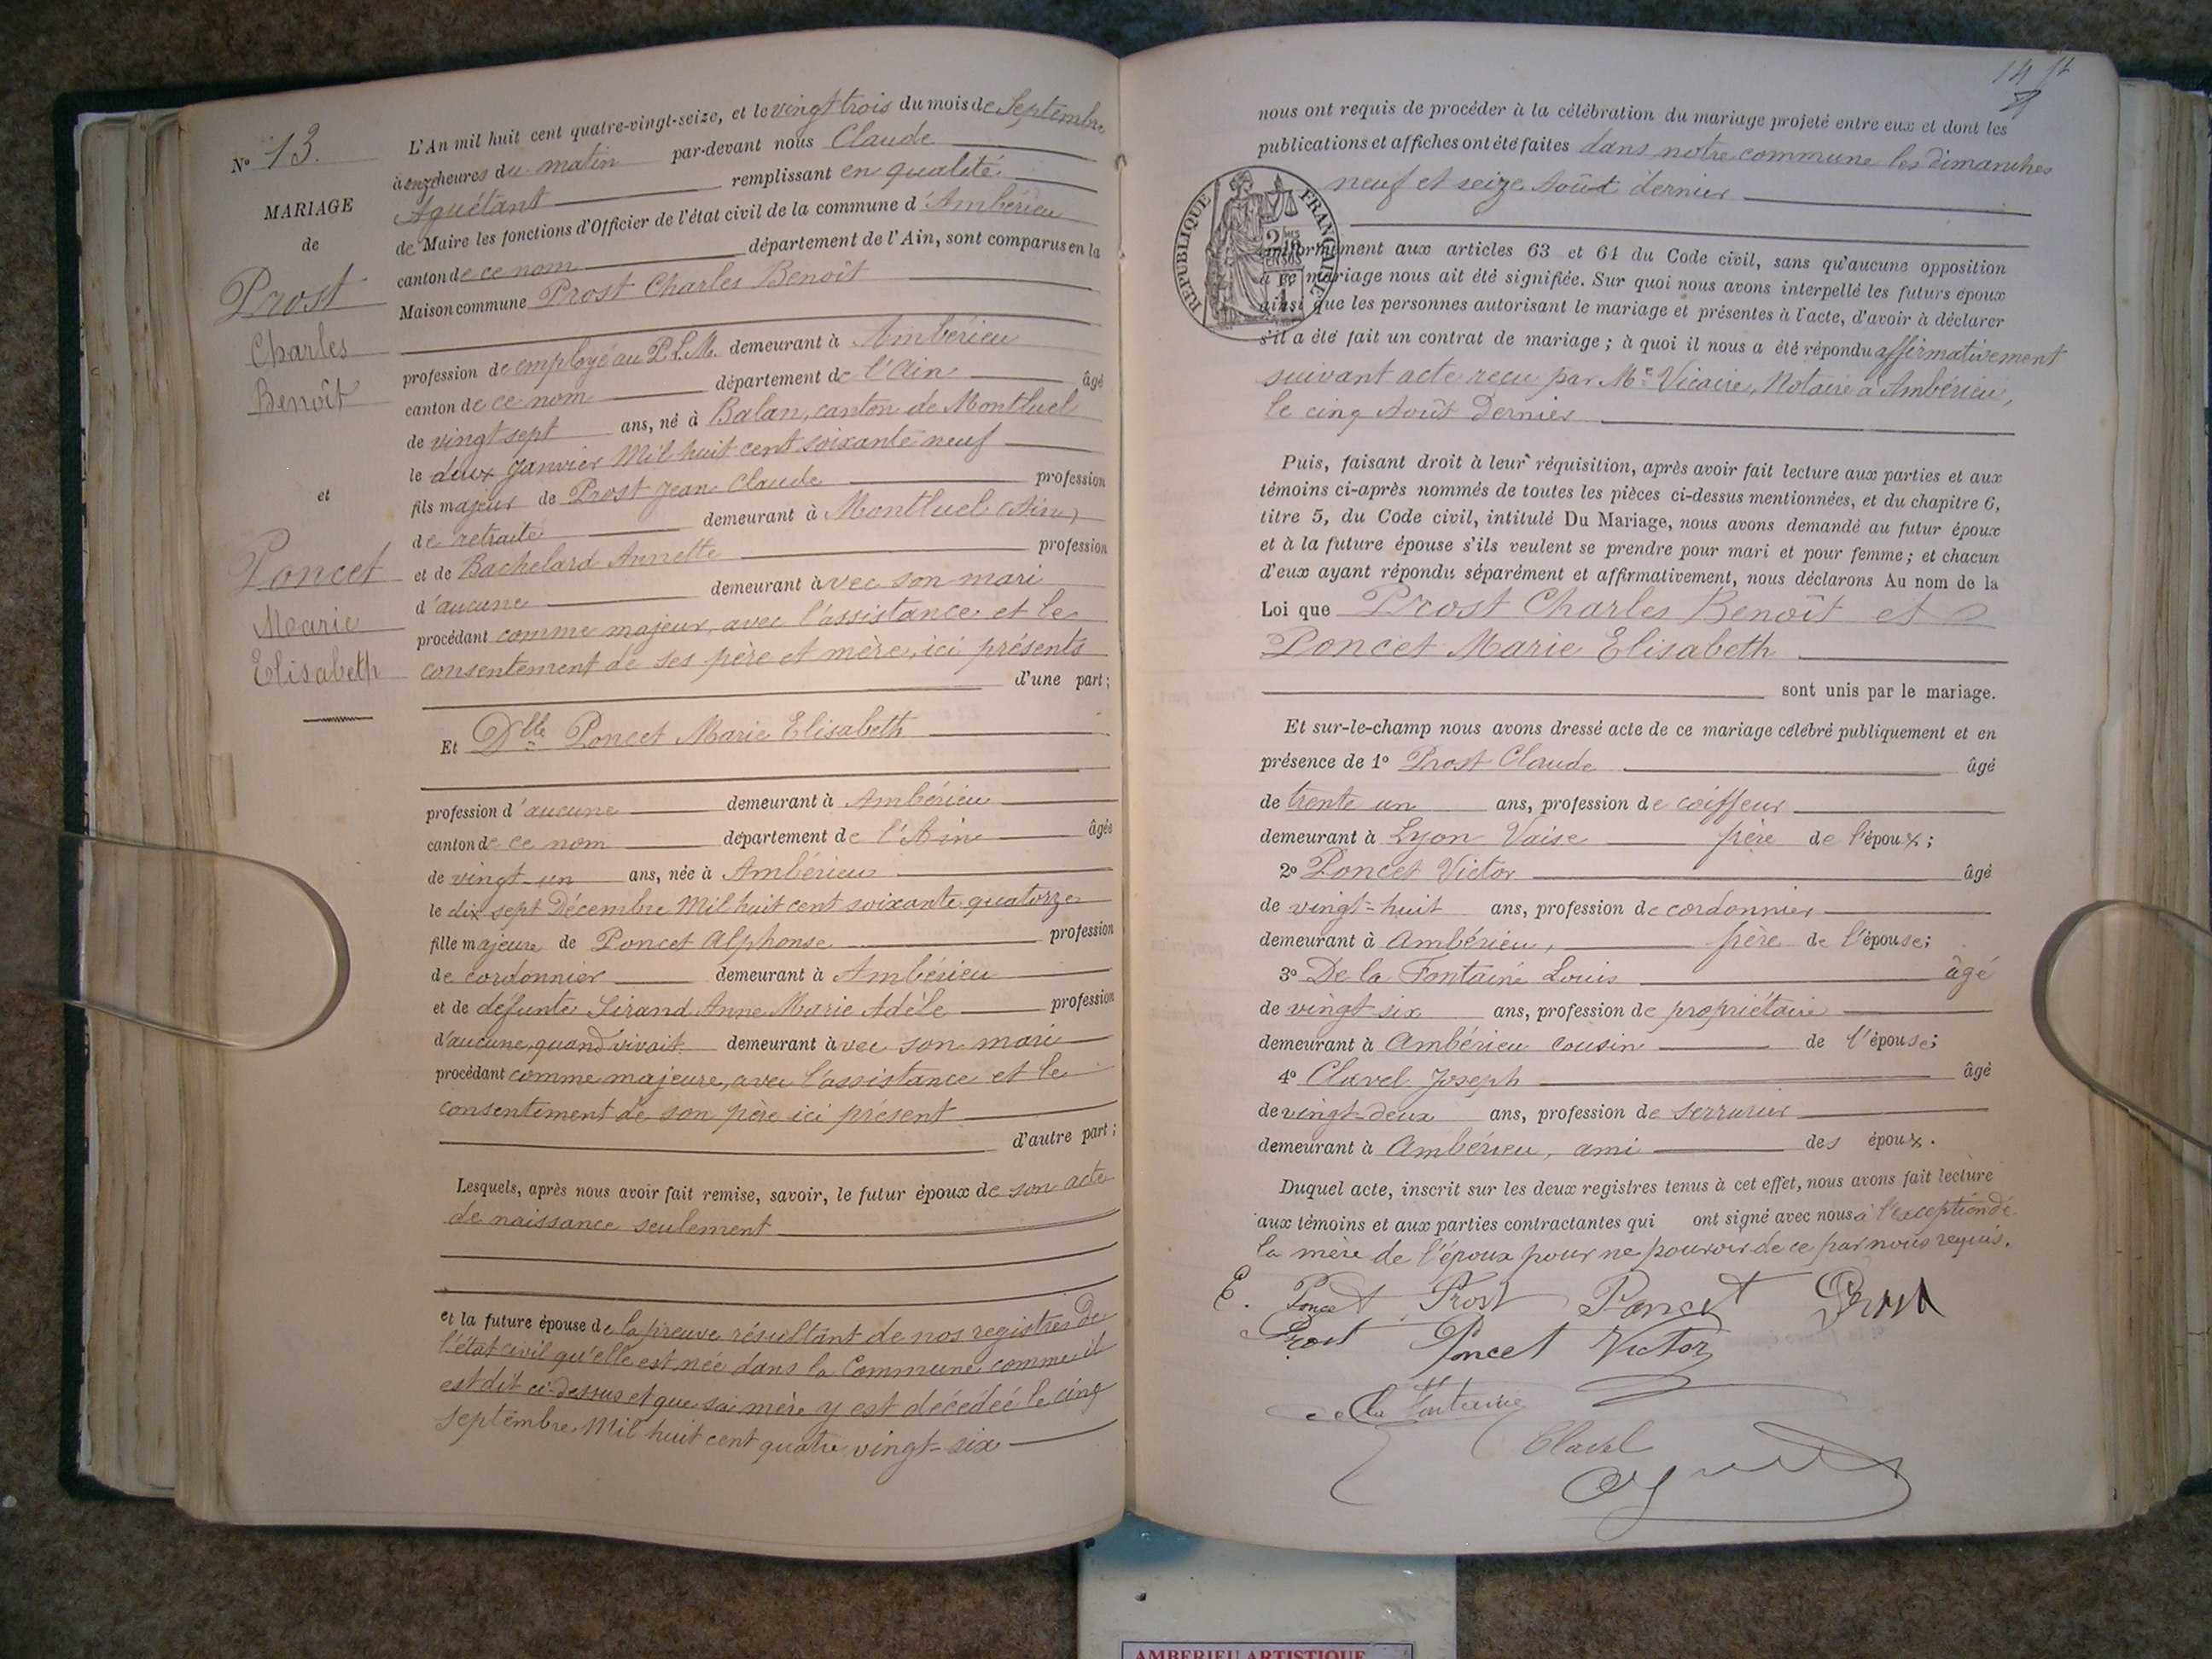 N° 13.
MARIAGE
de
Prost
Charles
Benoît
et
Poncet
Marie
Elisabeth
L'An mil huit cent quatre-vingt-seize, et le vingt trois du mois de Septembre
à onze heures du matin par-devant nous Claude
Aguétant remplissant en qualité
de Maire les fonctions d'Officier de l'état civil de la commune d'Ambérieu
canton de ce nom département de l'Ain, sont comparus en la
Maison commune Prost Charles Benoît
profession de employé au P.L.M. demeurant à Ambérieu
canton de ce nom département de l'Ain âgé
de vingt sept ans, né à Balan, canton de Montluel
le deux Janvier Mil huit cent soixante neuf
fils majeur de Prost Jean Claude profession
de retraité demeurant à Montluel (Ain)
et de Bachelard Annette profession
d'aucune demeurant avec son mari
procédant comme majeur, avec l'assistance et le
consentement de ses père et mère, ici présents
d'une part;
Et Dlle Poncet Marie Elisabeth
profession d'aucune demeurant à Ambérieu
canton de ce nom département de l'Ain âgée
de vingt-un ans, née à Ambérieu
le dix sept Décembre Mil huit cent soixante quatorze
fille majeure de Poncet Alphonse profession
de cordonnier demeurant à Ambérieu
et de défunte Sirand Anne Marie Adèle profession
d'aucune, quand vivait demeurant avec son mari
procédant comme majeure, avec l'assistance et le
consentement de son père ici présent
d'autre part;
Lesquels, après nous avoir fait remise, savoir, le futur époux de son acte
de naissance seulement
et la future épouse de la preuve résultant de nos registres de
l'état civil qu'elle est née dans la Commune comme il
est dit ci-dessus et que sa mère y est décédée le cinq
septembre Mil huit cent quatre vingt-six
14
nous ont requis de procéder à la célébration du mariage projeté entre eux et dont les
publications et affiches ont été faites dans notre commune les dimanches
neuf et seize Août dernier
RÉPUBLIQUE FRANÇAISE
conformément aux articles 63 et 64 du Code civil, sans qu'aucune opposition
à ce mariage nous ait été signifiée. Sur quoi nous avons interpellé les futurs époux
ainsi que les personnes autorisant le mariage et présentes à l'acte, d'avoir à déclarer
s'il a été fait un contrat de mariage; à quoi il nous a été répondu affirmativement
suivant acte reçu par Me Vicaire, Notaire à Ambérieu,
le cinq Août Dernier
Puis, faisant droit à leur réquisition, après avoir fait lecture aux parties et aux
témoins ci-après nommés de toutes les pièces ci-dessus mentionnées, et du chapitre 6,
titre 5, du Code civil, intitulé Du Mariage, nous avons demandé au futur époux
et à la future épouse s'ils veulent se prendre pour mari et pour femme; et chacun
d'eux ayant répondu séparément et affirmativement, nous déclarons Au nom de la
Loi que Prost Charles Benoît et
Poncet Marie Elisabeth
sont unis par le mariage.
Et sur-le-champ nous avons dressé acte de ce mariage célébré publiquement et en
présence de 1° Prost Claude âgé
de trente un ans, profession de coiffeur
demeurant à Lyon Vaise frère de l'époux;
2° Poncet Victor âgé
de vingt-huit ans, profession de cordonnier
demeurant à Ambérieu, frère de l'épouse;
3° De la Fontaine Louis âgé
de vingt-six ans, profession de propriétaire
demeurant à Ambérieu cousin de l'épouse;
4° Clavel Joseph âgé
de vingt-deux ans, profession de serrurier
demeurant à Ambérieu, ami des époux.
Duquel acte, inscrit sur les deux registres tenus à cet effet, nous avons fait lecture
aux témoins et aux parties contractantes qui ont signé avec nous à l'exception de
la mère de l'époux pour ne pouvoir de ce par nous requis.
E. Poncet Prost Poncet Prost
Prost Poncet Victor
de la Fontaine
Clavel
AMBERIEU ARTISTIQUE